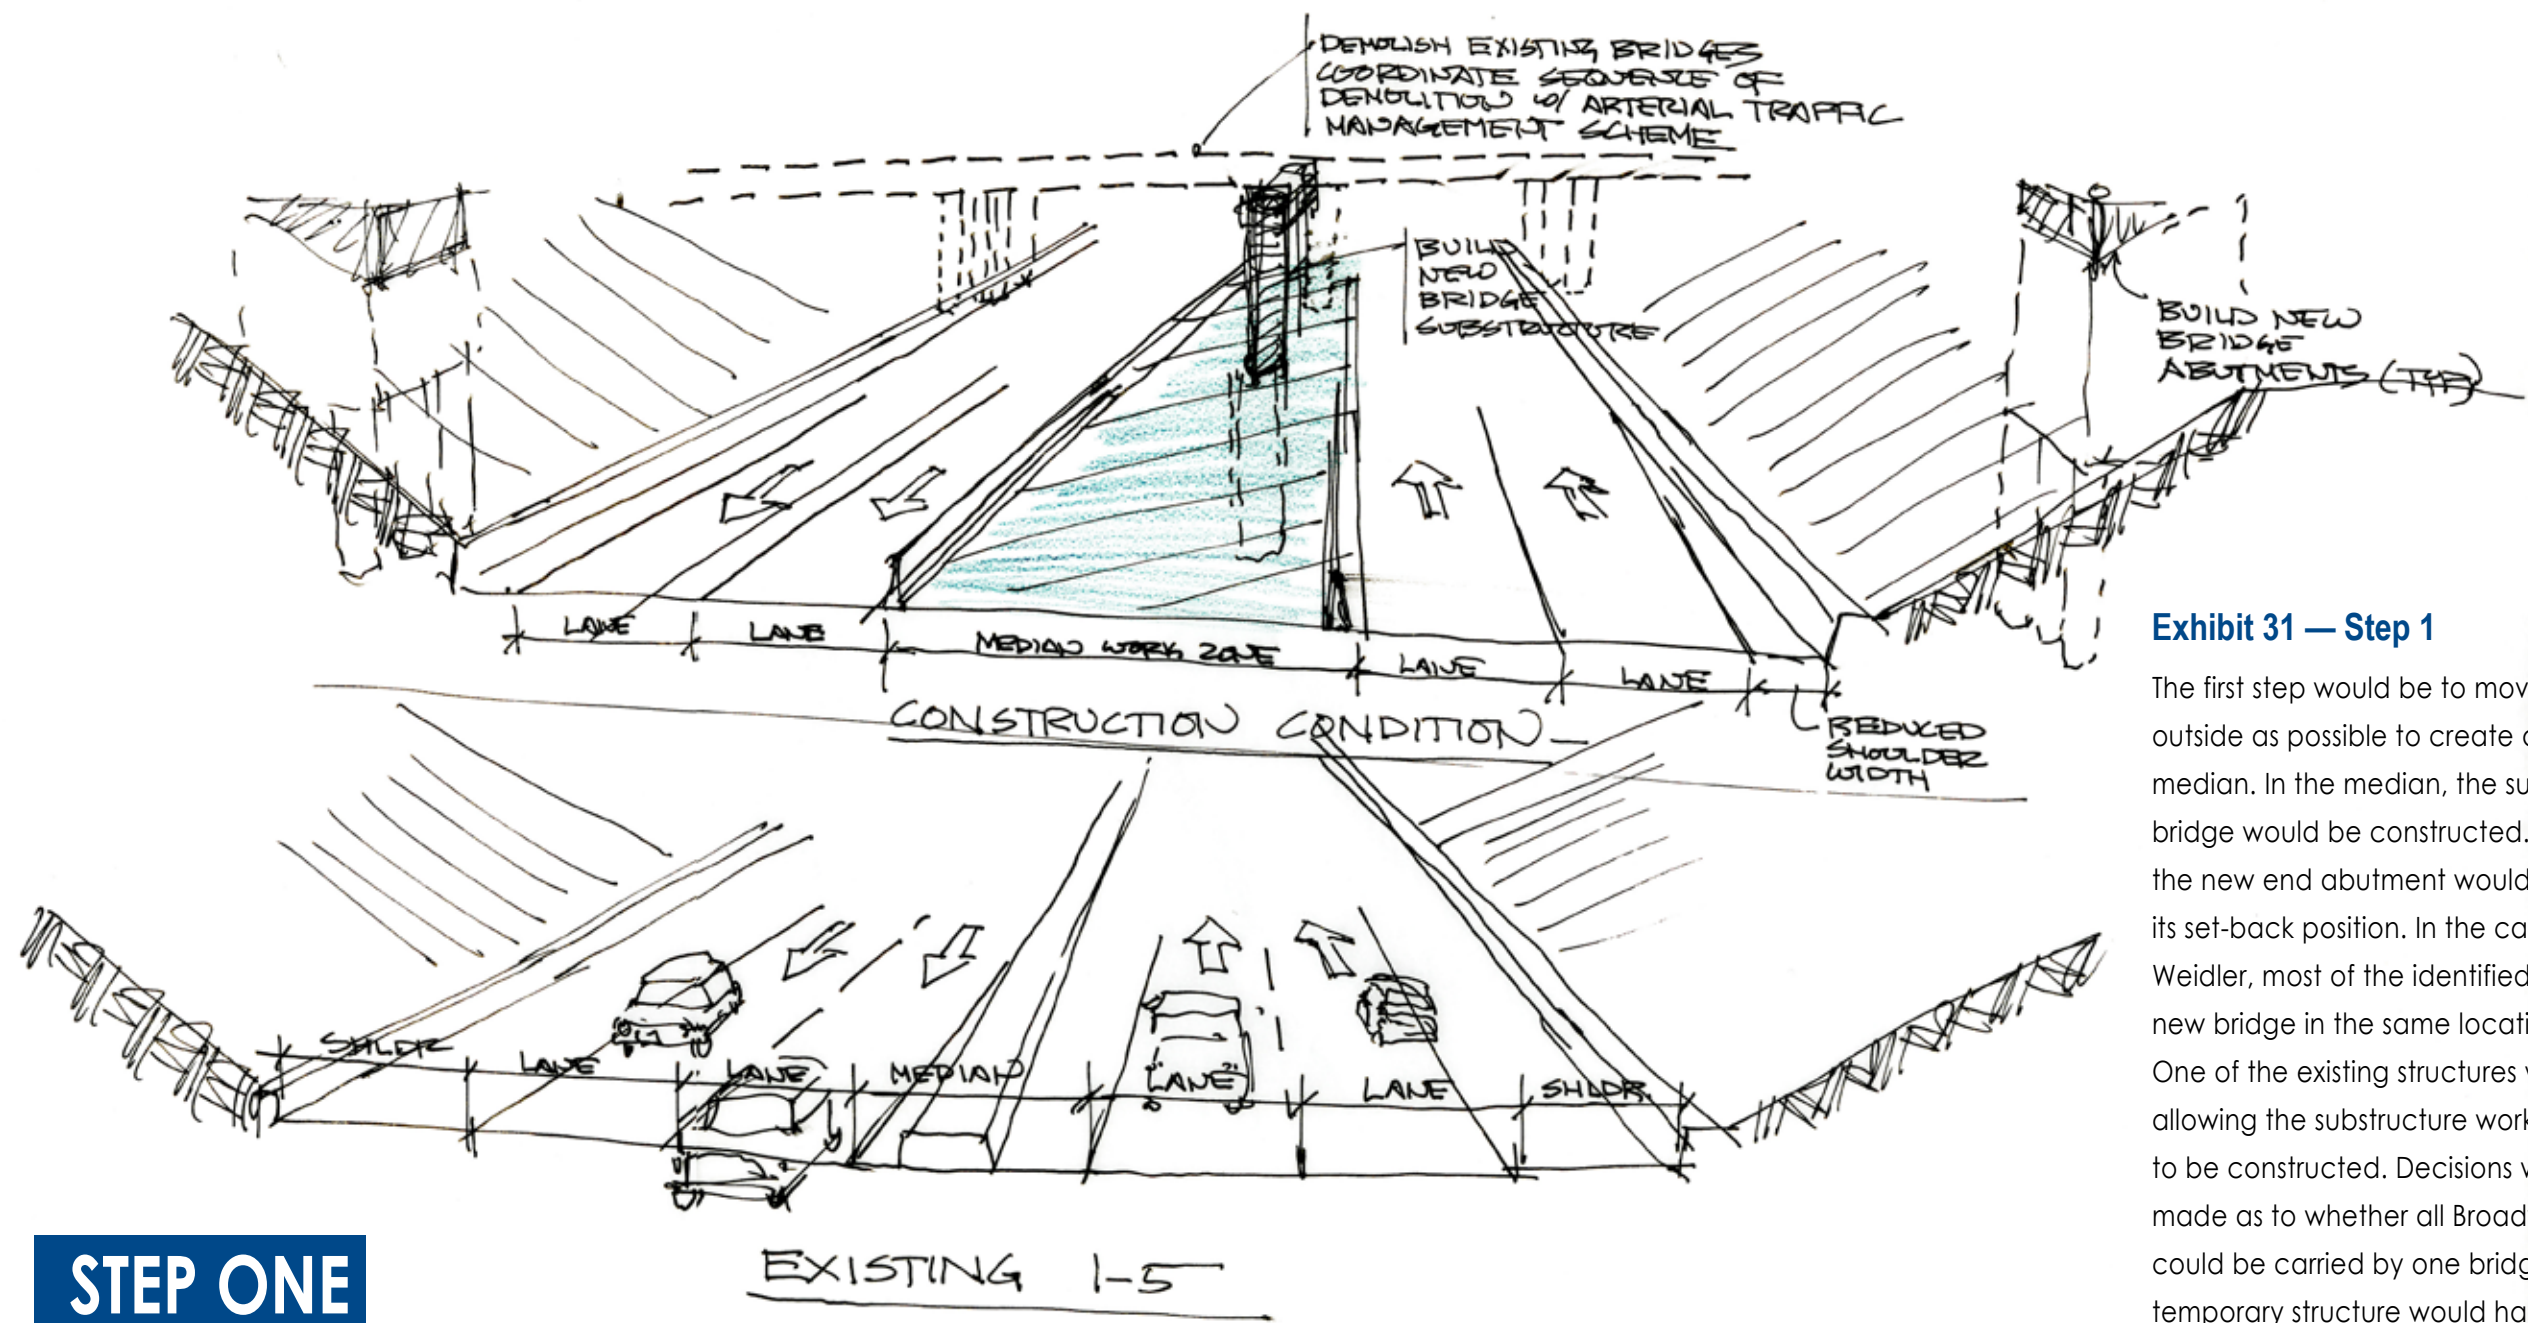 DEMOLISH EXISTING BRIDGES
COORDINATE SEQUENCE OF
DEMOLITION W/ ARTERIAL TRAFFIC
MANAGEMENT SCHEME
BUILD
NEW
BRIDGE
SUBSTRUCTURE
BUILD NEW
BRIDGE
ABUTMENTS (TYP)
LANE
LANE
MEDIAN WORK ZONE
LANE
LANE
REDUCED
SHOULDER
WIDTH
CONSTRUCTION CONDITION
SHLDR
LANE
LANE
MEDIAN
LANE
LANE
SHLDR.
EXISTING I-5
STEP ONE
Exhibit 31 — Step 1
The first step would be to mov
outside as possible to create
median. In the median, the su
bridge would be constructed.
the new end abutment would
its set-back position. In the ca
Weidler, most of the identified
new bridge in the same locati
One of the existing structures
allowing the substructure work
to be constructed. Decisions
made as to whether all Broad
could be carried by one bridg
temporary structure would ha